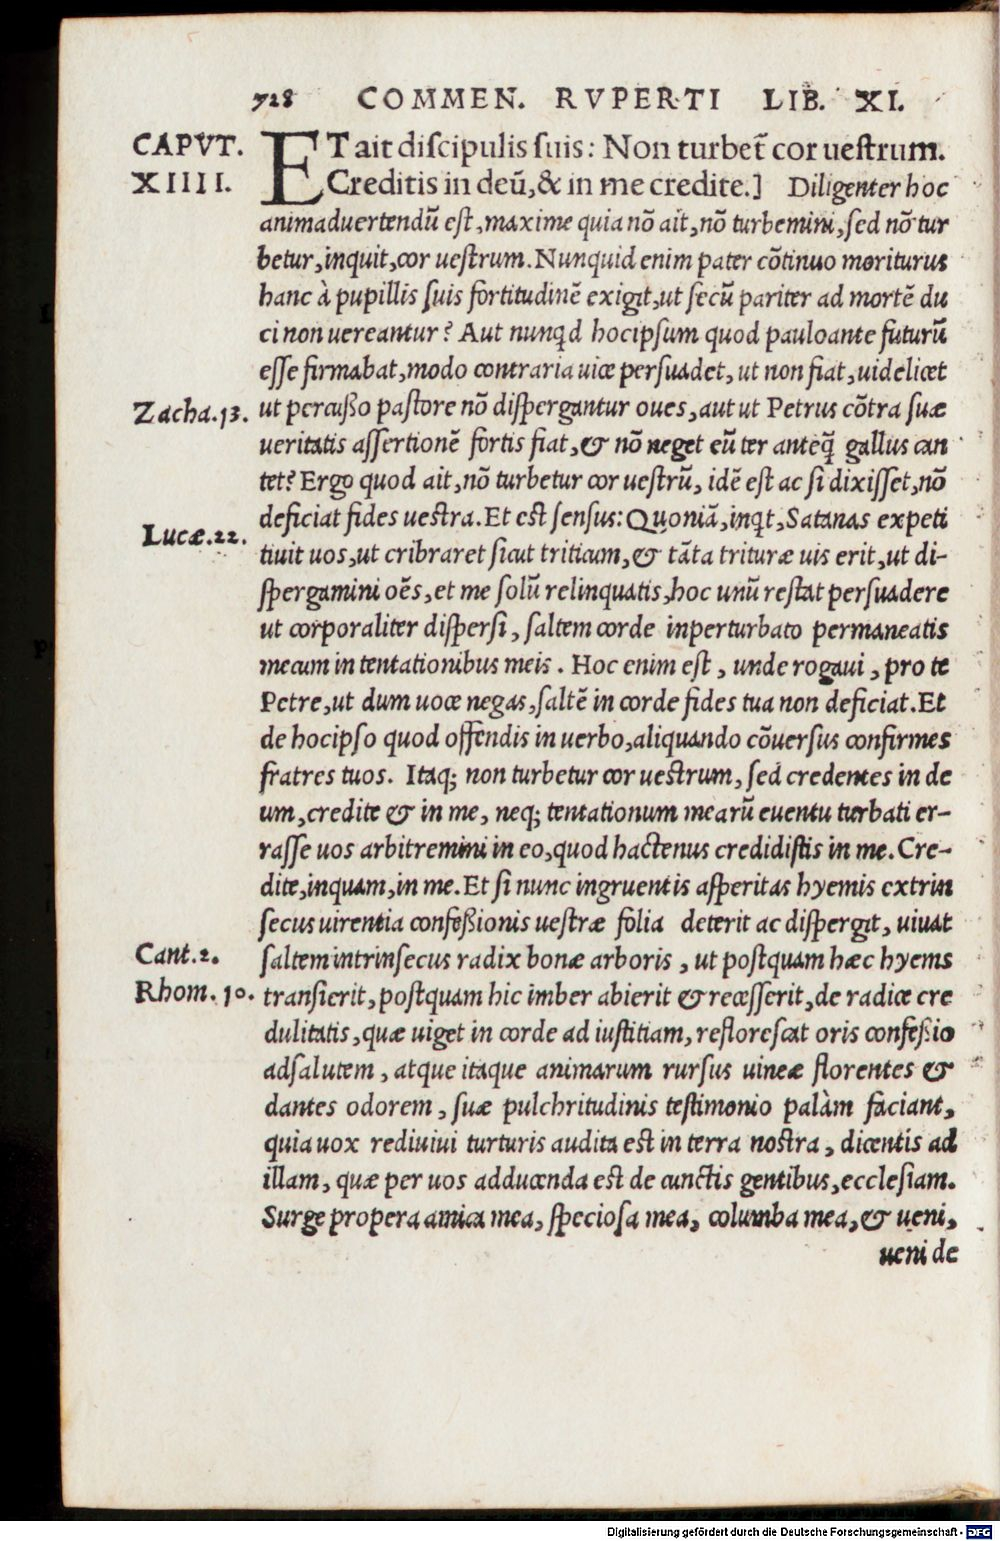 728 COMMEN. RVPERTI LIB. XI.
CAPVT.
XIIII.
ET ait discipulis suis: Non turbet̃ cor uestrum.
Creditis in deũ, & in me credite.] Diligenter hoc
animaduertendũ est, maxime quia nõ ait, nõ turbemini, sed nõ tur
betur, inquit, cor uestrum. Nunquid enim pater cõtinuo moriturus
hanc à pupillis suis fortitudinẽ exigit, ut secũ pariter ad mortẽ du
ci non uereantur? Aut nunqd hocipsum quod pauloante futurũ
esse firmabat, modo contraria uice persuadet, ut non fiat, uidelicet
Zacha.13.
ut percußo pastore nõ dispergantur oues, aut ut Petrus cõtra suæ
ueritatis assertionẽ fortis fiat, & nõ neget eũ ter anteq̃ gallus can
tet? Ergo quod ait, nõ turbetur cor uestrũ, idẽ est ac si dixisset, nõ
deficiat fides uestra. Et est sensus: Quoniã, inqt, Satanas expeti
Lucæ.22.
tiuit uos, ut cribraret sicut triticum, & tãta trituræ uis erit, ut di-
spergamini oẽs, et me solũ relinquatis, hoc unũ restat persuadere
ut corporaliter dispersi, saltem corde inperturbato permaneatis
mecum in tentationibus meis. Hoc enim est, unde rogaui, pro te
Petre, ut dum uoce negas, saltẽ in corde fides tua non deficiat. Et
de hocipso quod offendis in uerbo, aliquando cõuersus confirmes
fratres tuos. Itaq; non turbetur cor uestrum, sed credentes in de
um, credite & in me, neq; tentationum mearũ euentu turbati er-
rasse uos arbitremini in eo, quod hactenus credidistis in me. Cre-
dite, inquam, in me. Et si nunc ingruentis asperitas hyemis extrin
secus uirentia confeßionis uestræ folia deterit ac dispergit, uiuat
Cant.2.
saltem intrinsecus radix bonæ arboris, ut postquam hæc hyems
Rhom.10.
transierit, postquam hic imber abierit & recesserit, de radice cre
dulitatis, quæ uiget in corde ad iustitiam, reflorescat oris confeßio
adsalutem, atque itaque animarum rursus uineæ florentes &
dantes odorem, suæ pulchritudinis testimonio palàm faciant,
quia uox rediuiui turturis audita est in terra nostra, dicentis ad
illam, quæ per uos adducenda est de cunctis gentibus, ecclesiam.
Surge propera amica mea, speciosa mea, columba mea, & ueni,
ueni de
Digitalisierung gefördert durch die Deutsche Forschungsgemeinschaft - DFG